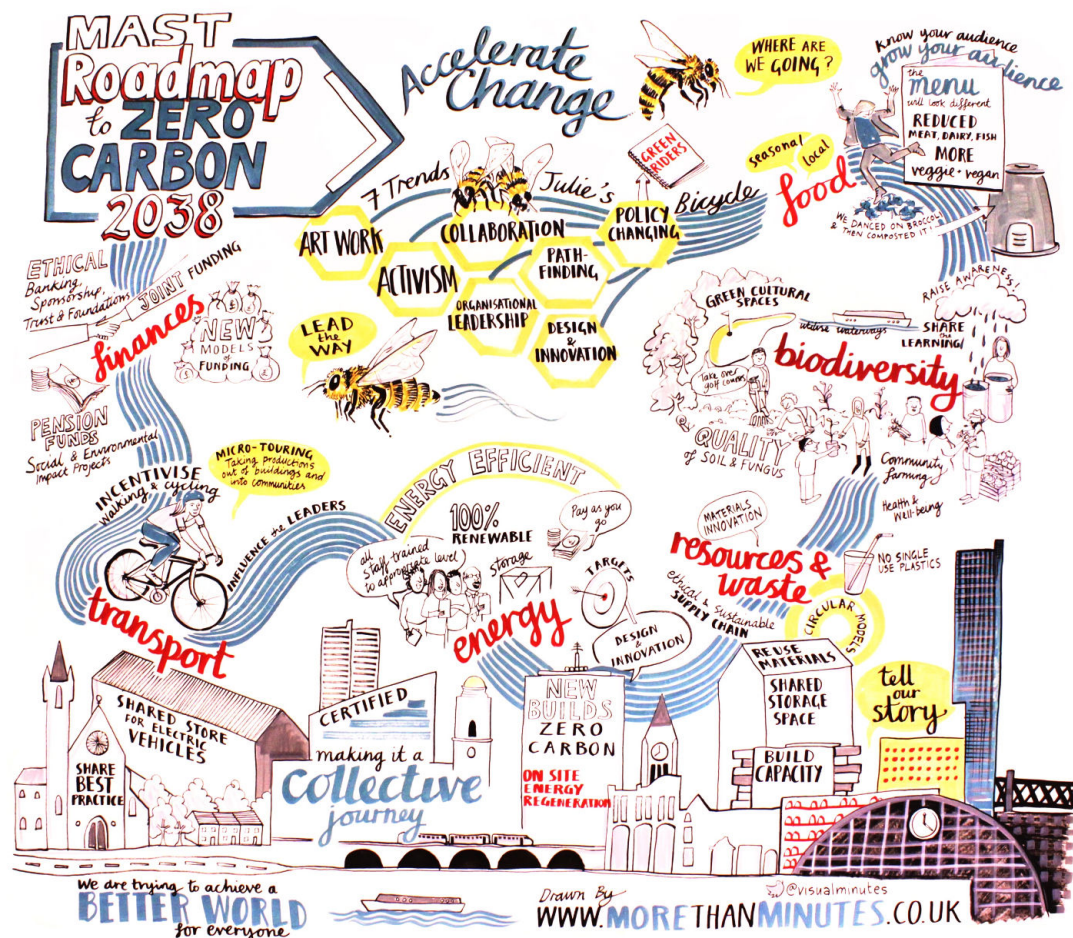 MAST
Roadmap
to ZERO
CARBON
2038
Accelerate
Change
WHERE ARE
WE GOING?
Know your audience
grow your audience
the
menu
will look different
REDUCED
MEAT, DAIRY, FISH
MORE
veggie + vegan
seasonal
local
food
WE DANCED ON BROCCOLI
& THEN COMPOSTED IT!
7 Trends
Julie's
Bicycle
GREEN
RIDERS
ART WORK
ACTIVISM
COLLABORATION
ORGANISATIONAL
LEADERSHIP
PATH-
FINDING
POLICY
CHANGING
DESIGN
&
INNOVATION
LEAD
the
WAY
ETHICAL
Banking,
Sponsorship,
Trust & Foundations
JOINT FUNDING
finances
NEW
MODELS
FUNDING
PENSION
FUNDS
Social & Environmental
Impact Projects
RAISE AWARENESS!
GREEN CULTURAL
SPACES
utilise waterways
SHARE
the
LEARNING!
biodiversity
Take over
golf courses
QUALITY
OF SOIL & FUNGUS
Community
farming
Health &
Well-being
MICRO-TOURING
Taking productions
out of buildings and
into communities
INCENTIVISE
walking & cycling
INFLUENCE the LEADERS
transport
ENERGY EFFICIENT
100%
RENEWABLE
Pay as you
go
all
staff trained
to appropriate level)
storage
TARGETS
energy
DESIGN
&
INNOVATION
MATERIALS
INNOVATION
resources &
waste
ethical & sustainable
SUPPLY CHAIN
NO SINGLE
USE PLASTICS
CIRCULAR MODELS
REUSE
MATERIALS
SHARED
STORAGE
SPACE
BUILD
CAPACITY
tell
our
story
SHARED STORE
FOR ELECTRIC
VEHICLES
SHARE
BEST
PRACTICE
CERTIFIED
making it a
collective
journey
NEW
BUILDS
ZERO
CARBON
ON SITE
ENERGY
REGENERATION
We are trying to achieve a
BETTER WORLD
for everyone
Drawn By
@visualminutes
WWW.MORETHANMINUTES.CO.UK